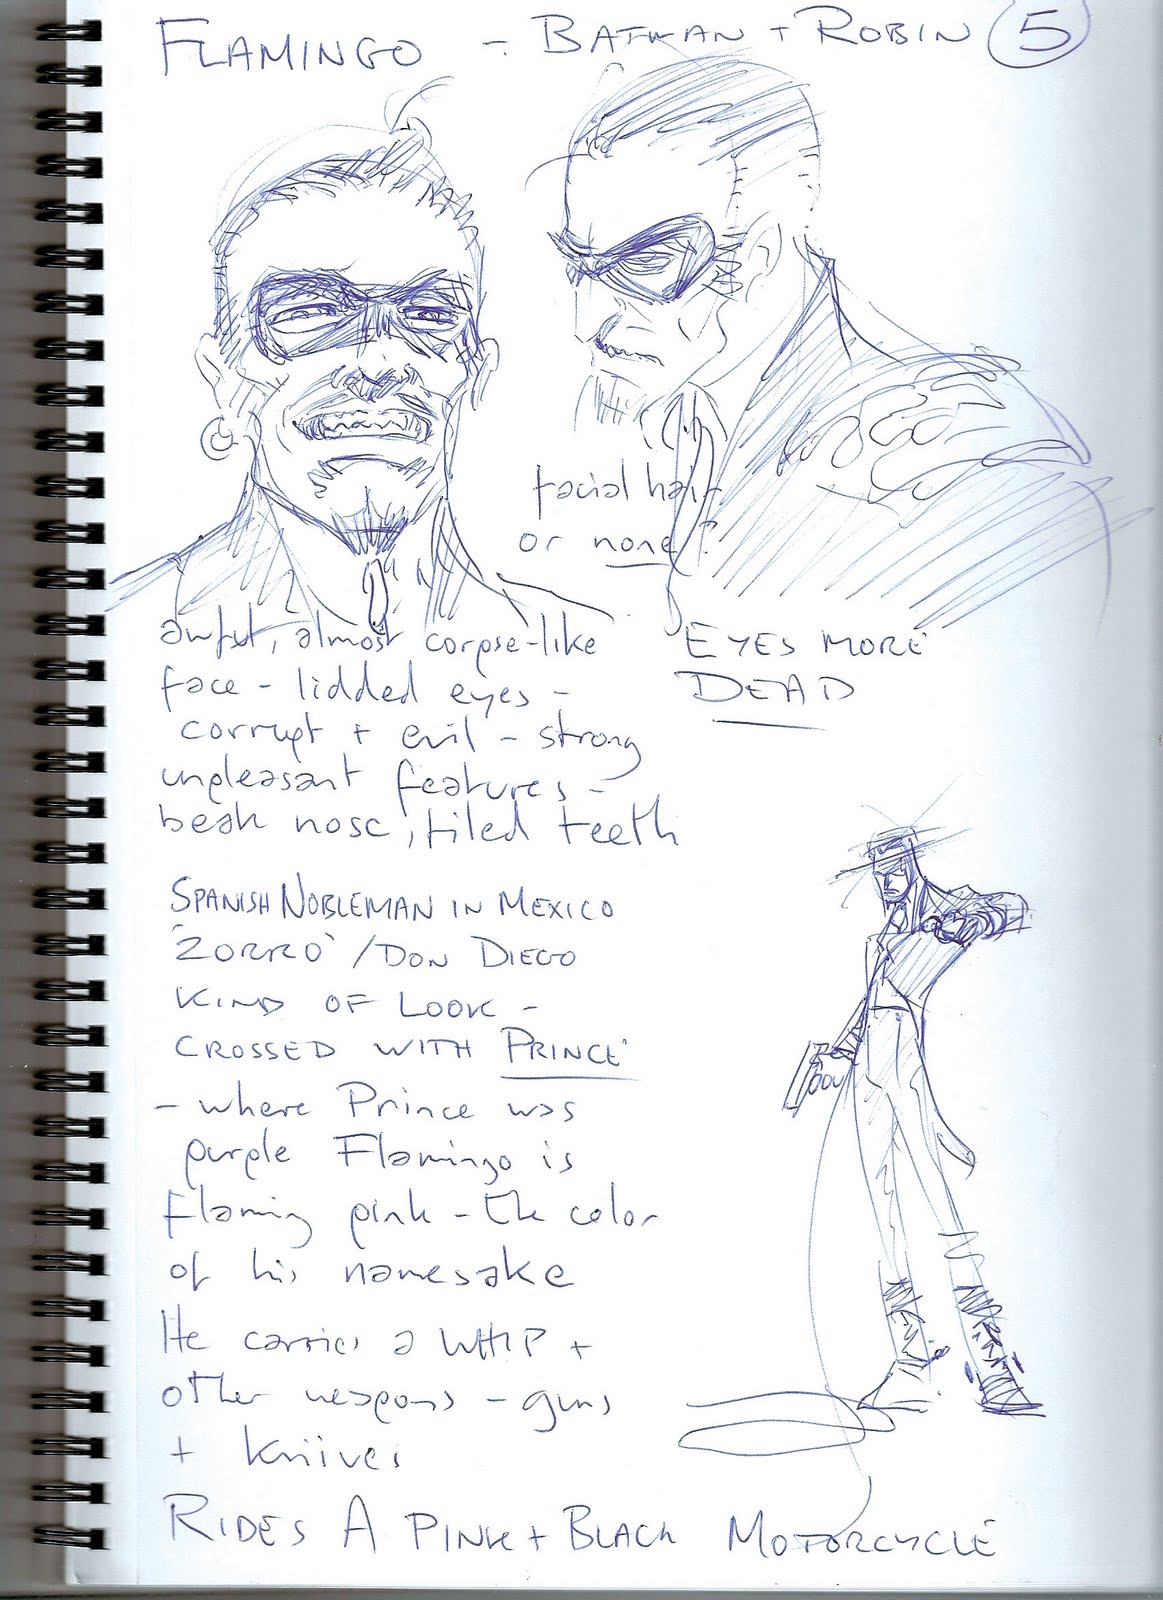 FLAMINGO - BATMAN + ROBIN 5
facial hair
or none?
awful, almost corpse-like
face - lidded eyes -
corrupt + evil - strong
unpleasant features -
beak nose, filed teeth
EYES MORE
DEAD
SPANISH NOBLEMAN IN MEXICO
'ZORRO' / DON DIEGO
KIND OF LOOK -
CROSSED WITH PRINCE
- where Prince was
purple Flamingo is
flaming pink - the color
of his namesake
He carries a WHIP +
other weapons - guns
+ kniives
RIDES A PINK + BLACK MOTORCYCLE